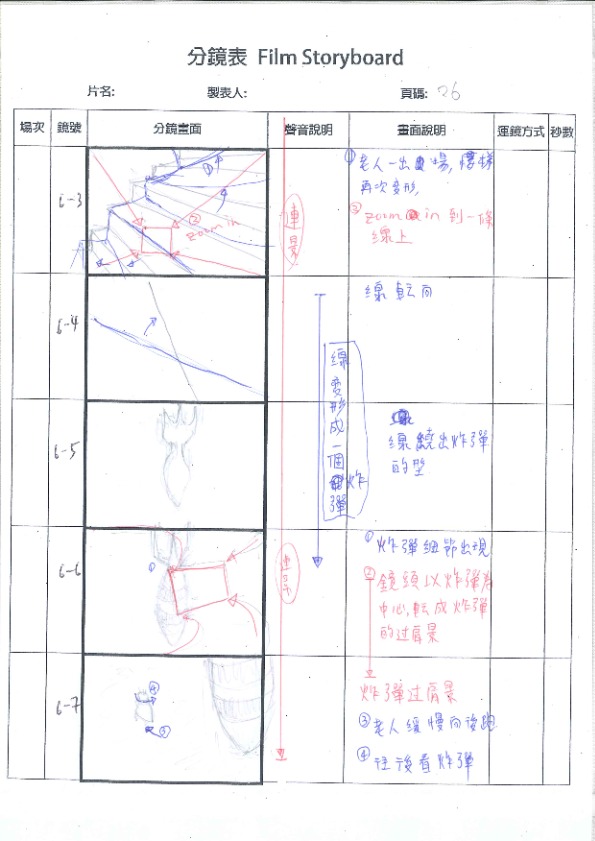 分鏡表 Film Storyboard
片名: 製表人: 頁碼: 26
場次 鏡號 分鏡畫面 聲音說明 畫面說明 運鏡方式 秒數
6-3
①
②
zoom in
連景
①老人一出場, 樓梯
再次變形,
②zoom in 到一條
線上
6-4
線轉向
線變形成一個炸彈
6-5
線繞出炸彈
的型
6-6
①
連景
①炸彈細節出現
②鏡頭以炸彈為
中心,転成炸彈
的过肩景
6-7
④
③
炸彈过肩景
③老人緩慢向後跑
④往後看炸彈